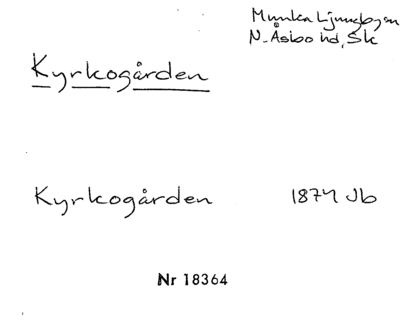 Munka Ljungby sn
N. Åsbo hd, Sk
Kyrkogården
Kyrkogården 1874 Jb
Nr 18364